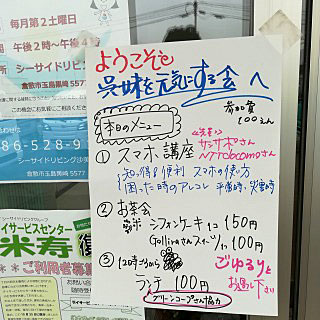 毎月第2土曜日
午後2時〜午後4時
所 シーサイドリビング
倉敷市玉島黒崎 5577
86-528-9
シーサイドリビング沙美
倉敷市玉島黒崎 557
イサービスセンター
米寿
ご利用者募集
ようこそ
呉妹を元気にする会へ
参加費
100えん
本日のメニュー
① スマホ講座
<先生>
サンサポさん
NTTdocomoさん
知っ得&便利 スマホの使い方
困った時のアレコレ 平常時・災害時
② お茶会
シフォンケーキ 1コ 150円
さんスイーツ 1ケ 100円
③ 12時ごろから
ランチ 100円
グリーンコープさん協力
ごゆるりと
お過し下さい